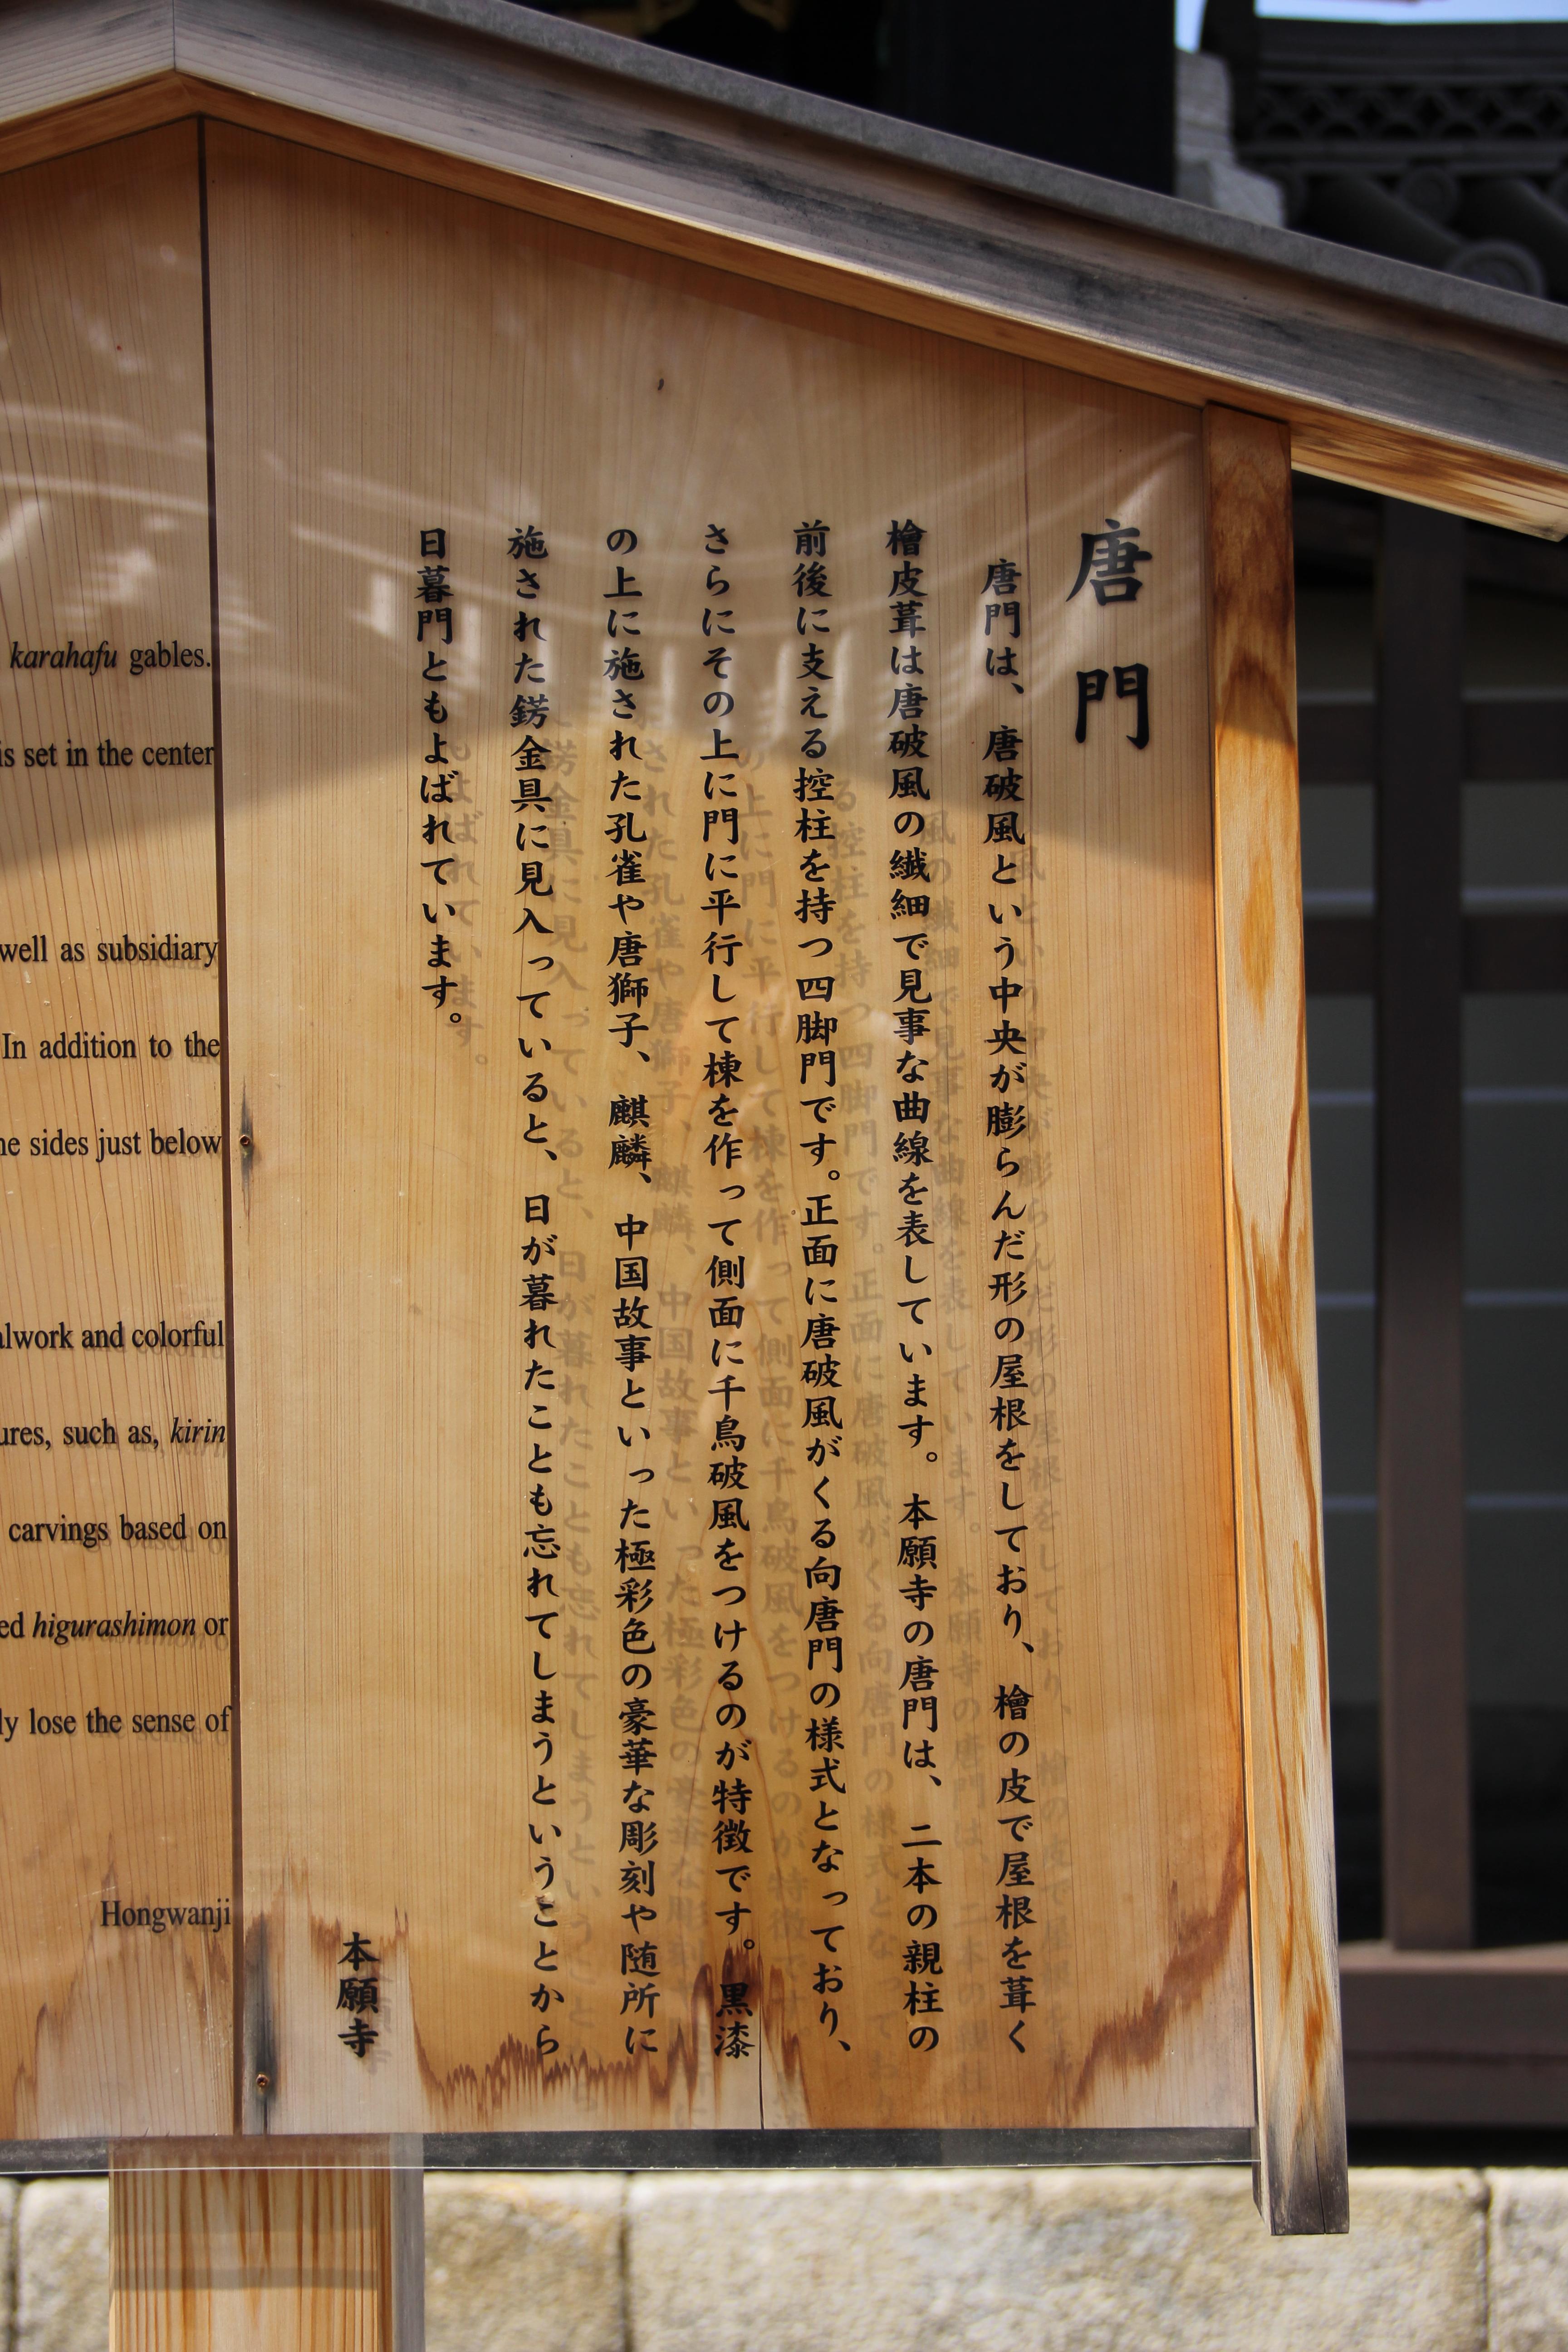 唐門
唐門は、唐破風という中央が膨らんだ形の屋根をしており、檜の皮で屋根を葺く
檜皮葺は唐破風の繊細で見事な曲線を表しています。本願寺の唐門は、二本の親柱の
前後に支える控柱を持つ四脚門です。正面に唐破風がくる向唐門の様式となっており、
さらにその上に門に平行して棟を作って側面に千鳥破風をつけるのが特徴です。黒漆
の上に施された孔雀や唐獅子、麒麟、中国故事といった極彩色の豪華な彫刻や随所に
施された錺金具に見入っていると、日が暮れたことも忘れてしまうということから
日暮門ともよばれています。
本願寺
karahafu gables.
is set in the center
well as subsidiary
In addition to the
sides just below
and colorful
such as, kirin
carvings based on
higurashimon or
lose the sense of
Hongwanji